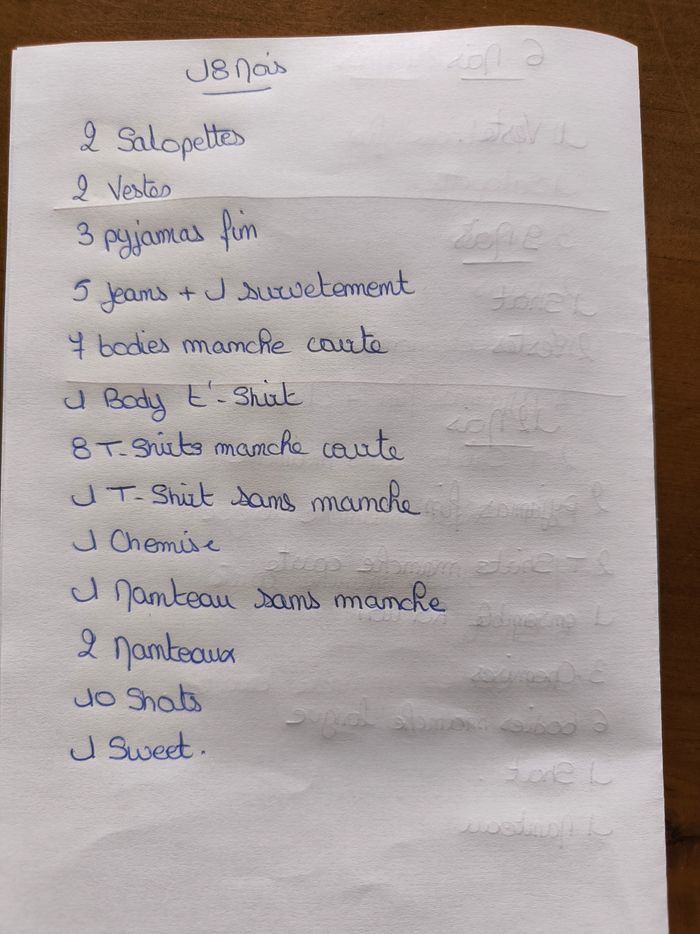 18 Mois
2 Salopettes
2 Vestes
3 pyjamas fin
5 jeans + 1 survetement
7 bodies manche courte
1 Body t'-Shirt
8 T-Shirts manche courte
1 T-Shirt sans manche
1 Chemise
1 Manteau sans manche
2 Manteaux
10 Shorts
1 Sweet.